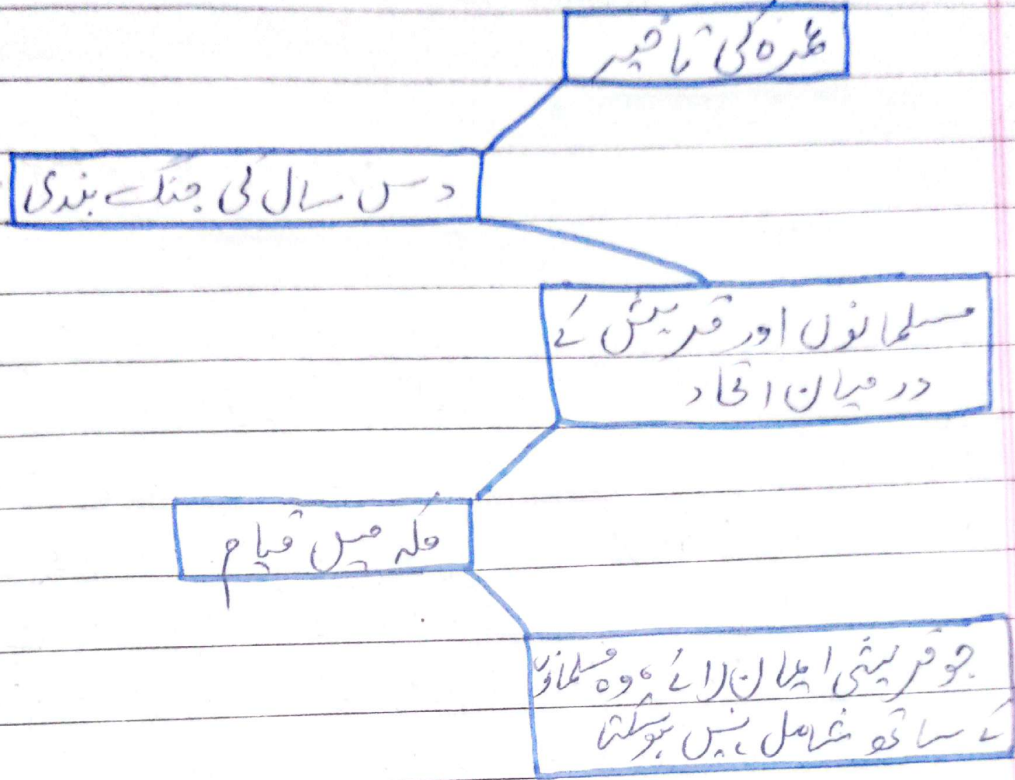 عمرہ کی تاخیر
دس سال کی جنگ بندی
مسلمانوں اور قریش کے
درمیان اتحاد
مکہ میں قیام
جو قریشی ایمان لائے وہ مسلمانوں
کے ساتھ شامل نہیں ہوسکتا